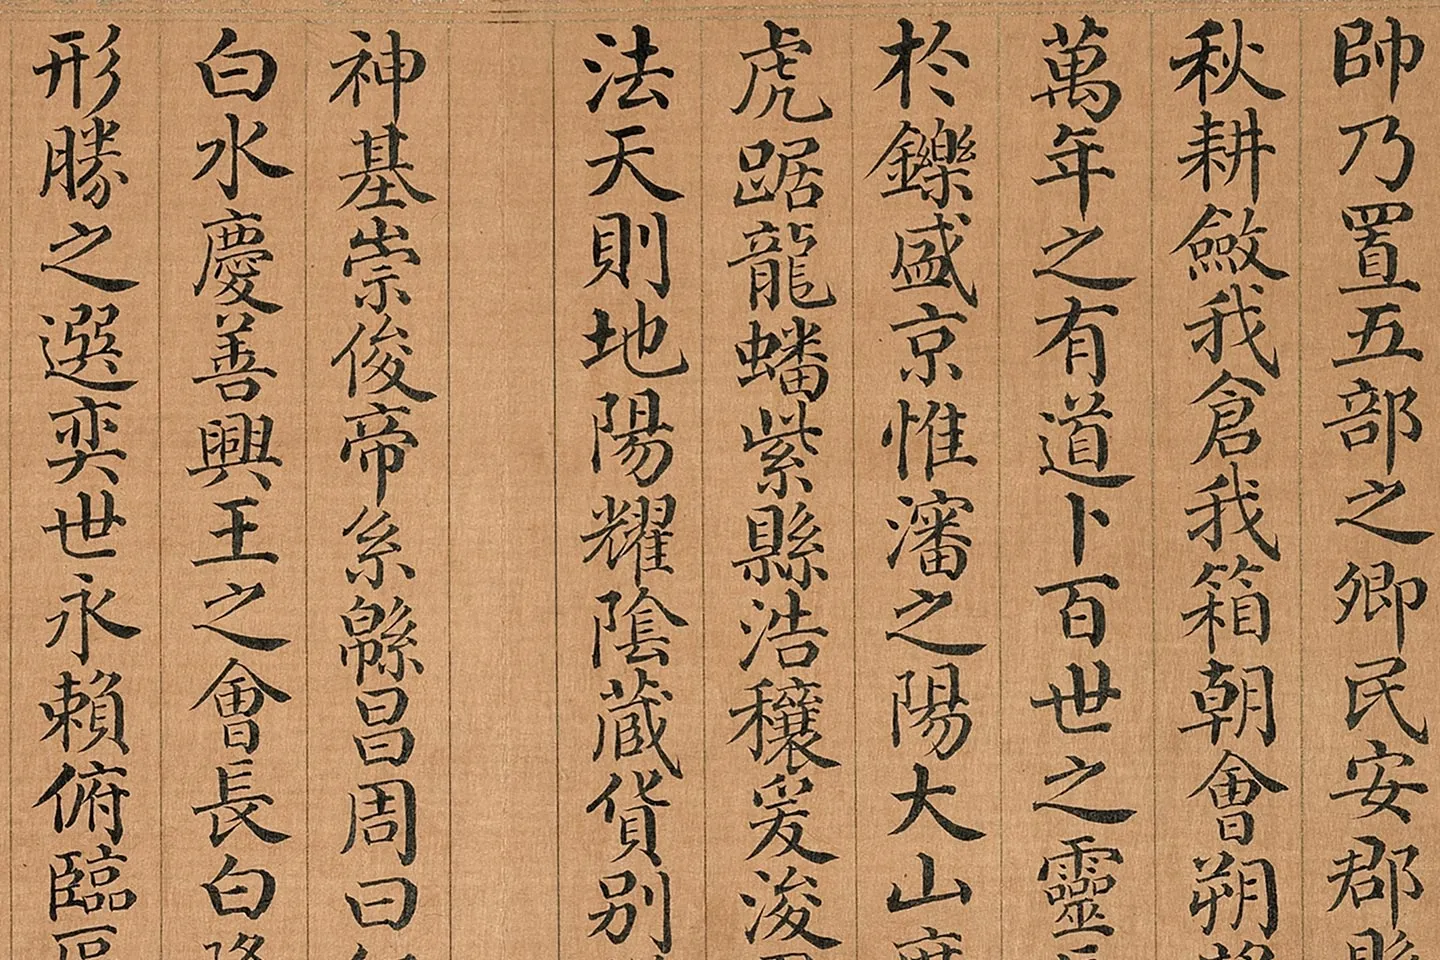 帥乃置五部之卿民安郡縣
秋耕斂我倉我箱朝會朔
萬年之有道卜百世之靈長
於鑠盛京惟瀋之陽大山廣
虎踞龍蟠紫縣浩穰爰浚
法天則地陽耀陰藏貨別
神基崇俊帝系緜昌周曰
白水慶善興王之會長白
形勝之選奕世永賴俯臨區